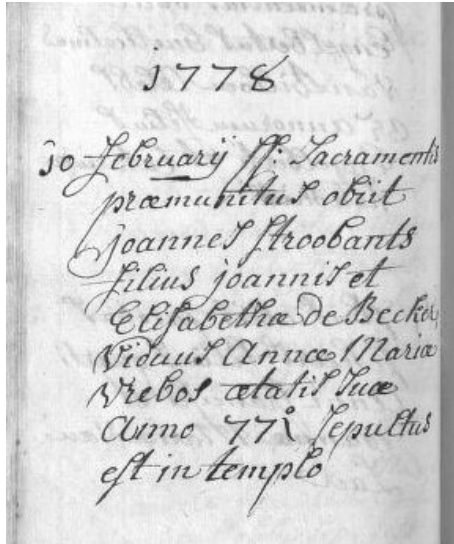 1778
10 february ss: Sacramentis
præmunitus obiit
joannes stroobants
filius joannis et
Elisabethæ de Becker,
viduus Annæ Mariæ
vrebos ætatis suæ
Anno 77º sepultus
est in templo